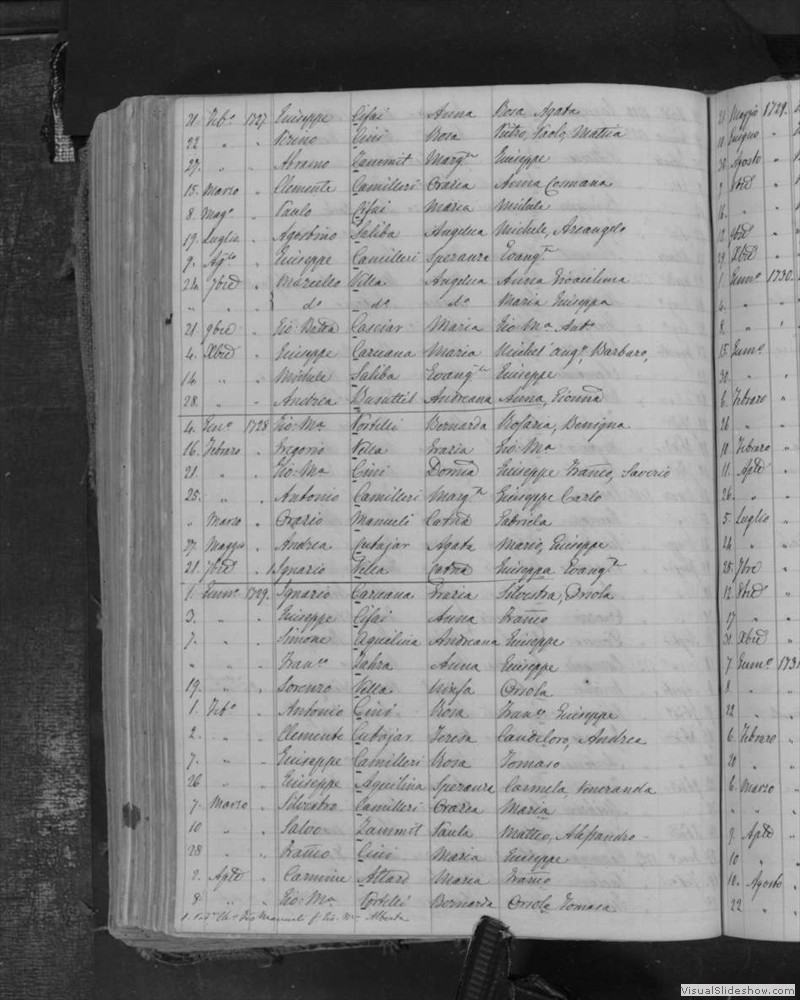 21. Feb.o 1727 Giuseppe Cifai Anna Rosa Agata
22 " " Pirino Cini Rosa Pietro, Paolo, Mattia
27. " " Abramo Zammit Marg.ta Giuseppe
15. Marzo " Clemente Camilleri Grazia Anna Commana
8. Mag.o " Paulo Cifai Maria Michele
19. Luglio " Agostino Saliba Angelica Michele, Arcangelo
9. Ag.to " Giuseppe Camilleri Speranza Evang.ta
24. 7bre " Marcello Vella Angelica Anna
" " " do do do Maria Giuseppa
21. 9bre " Gio Batta Casciar Maria Gio Ma. Ant.o
4. Xbre " Giuseppe Caruana Maria Michel'ang.o, Barbaro,
14. " " Michele Saliba Evang.ta Giuseppe
28. " " Andrea Busuttil Andreana Anna, Gionna
4. Gen.o 1728 Gio: Ma Portelli Bernarda Rosaria, Benigna
16. Febraro " Gregorio Vella Grazia Gio: Ma
21. " " Gio: Ma Cini Domca Giuseppe Franco, Saverio
25. " " Antonio Camilleri Marg.ta Giuseppe Carlo
" Marzo " Orazio Manueli Catna Gabriela
27. Maggio " Andrea Cutajar Agata Mario, Giuseppe
21. 7bre " Ignazio Vella Catna Giuseppa Evang.ta
1. Genn.o 1729. Ignazio Caruana Grazia Silvestra, Orsola
3. " " Giuseppe Cifai Anna Franco
7. " " Simone Aquilina Andreana Giuseppe
" " " Fran.co Zahra Anna Giuseppe
19. " " Lorenzo Vella Ninfa Orsola
1. Feb.o " Antonio Cini Rosa Fran.co Giuseppe
2. " " Clemente Cutajar Teresa Candeloro, Andrea
7. " " Giuseppe Camilleri Rosa Tomaso
26 " " Giuseppe Aquilina Speranza Carmela, Veneranda
7. Marzo " Silvestro Camilleri Grazia Maria
10 " " Salvo Zammit Paula Matteo, Alessandro
28 " " Franco Cini Maria Giuseppe
2. Aple " Carmine Attard Maria Franco
8. " " Gio: Ma Portelli Bernarda Orsola Tomasa
21 Maggio 1729.
11. Giugno "
30. Agosto "
7. 8bre "
16. " "
12. 9bre "
29. Xbre "
1. Genn.o 1730.
4. " "
8. " "
15. Genn.o
30. "
6. Febraro "
26 " "
10. Febraro "
11. Aple "
26. "
5. Luglio "
24 "
28. 7bre "
12. 8bre "
17 "
31. Xbre "
7. Genn.o 1731
8. "
22 "
6. Febraro "
20 "
6. Marzo "
" "
9. Aple "
10 "
10. Agosto "
22 "
VisualSlideshow.com